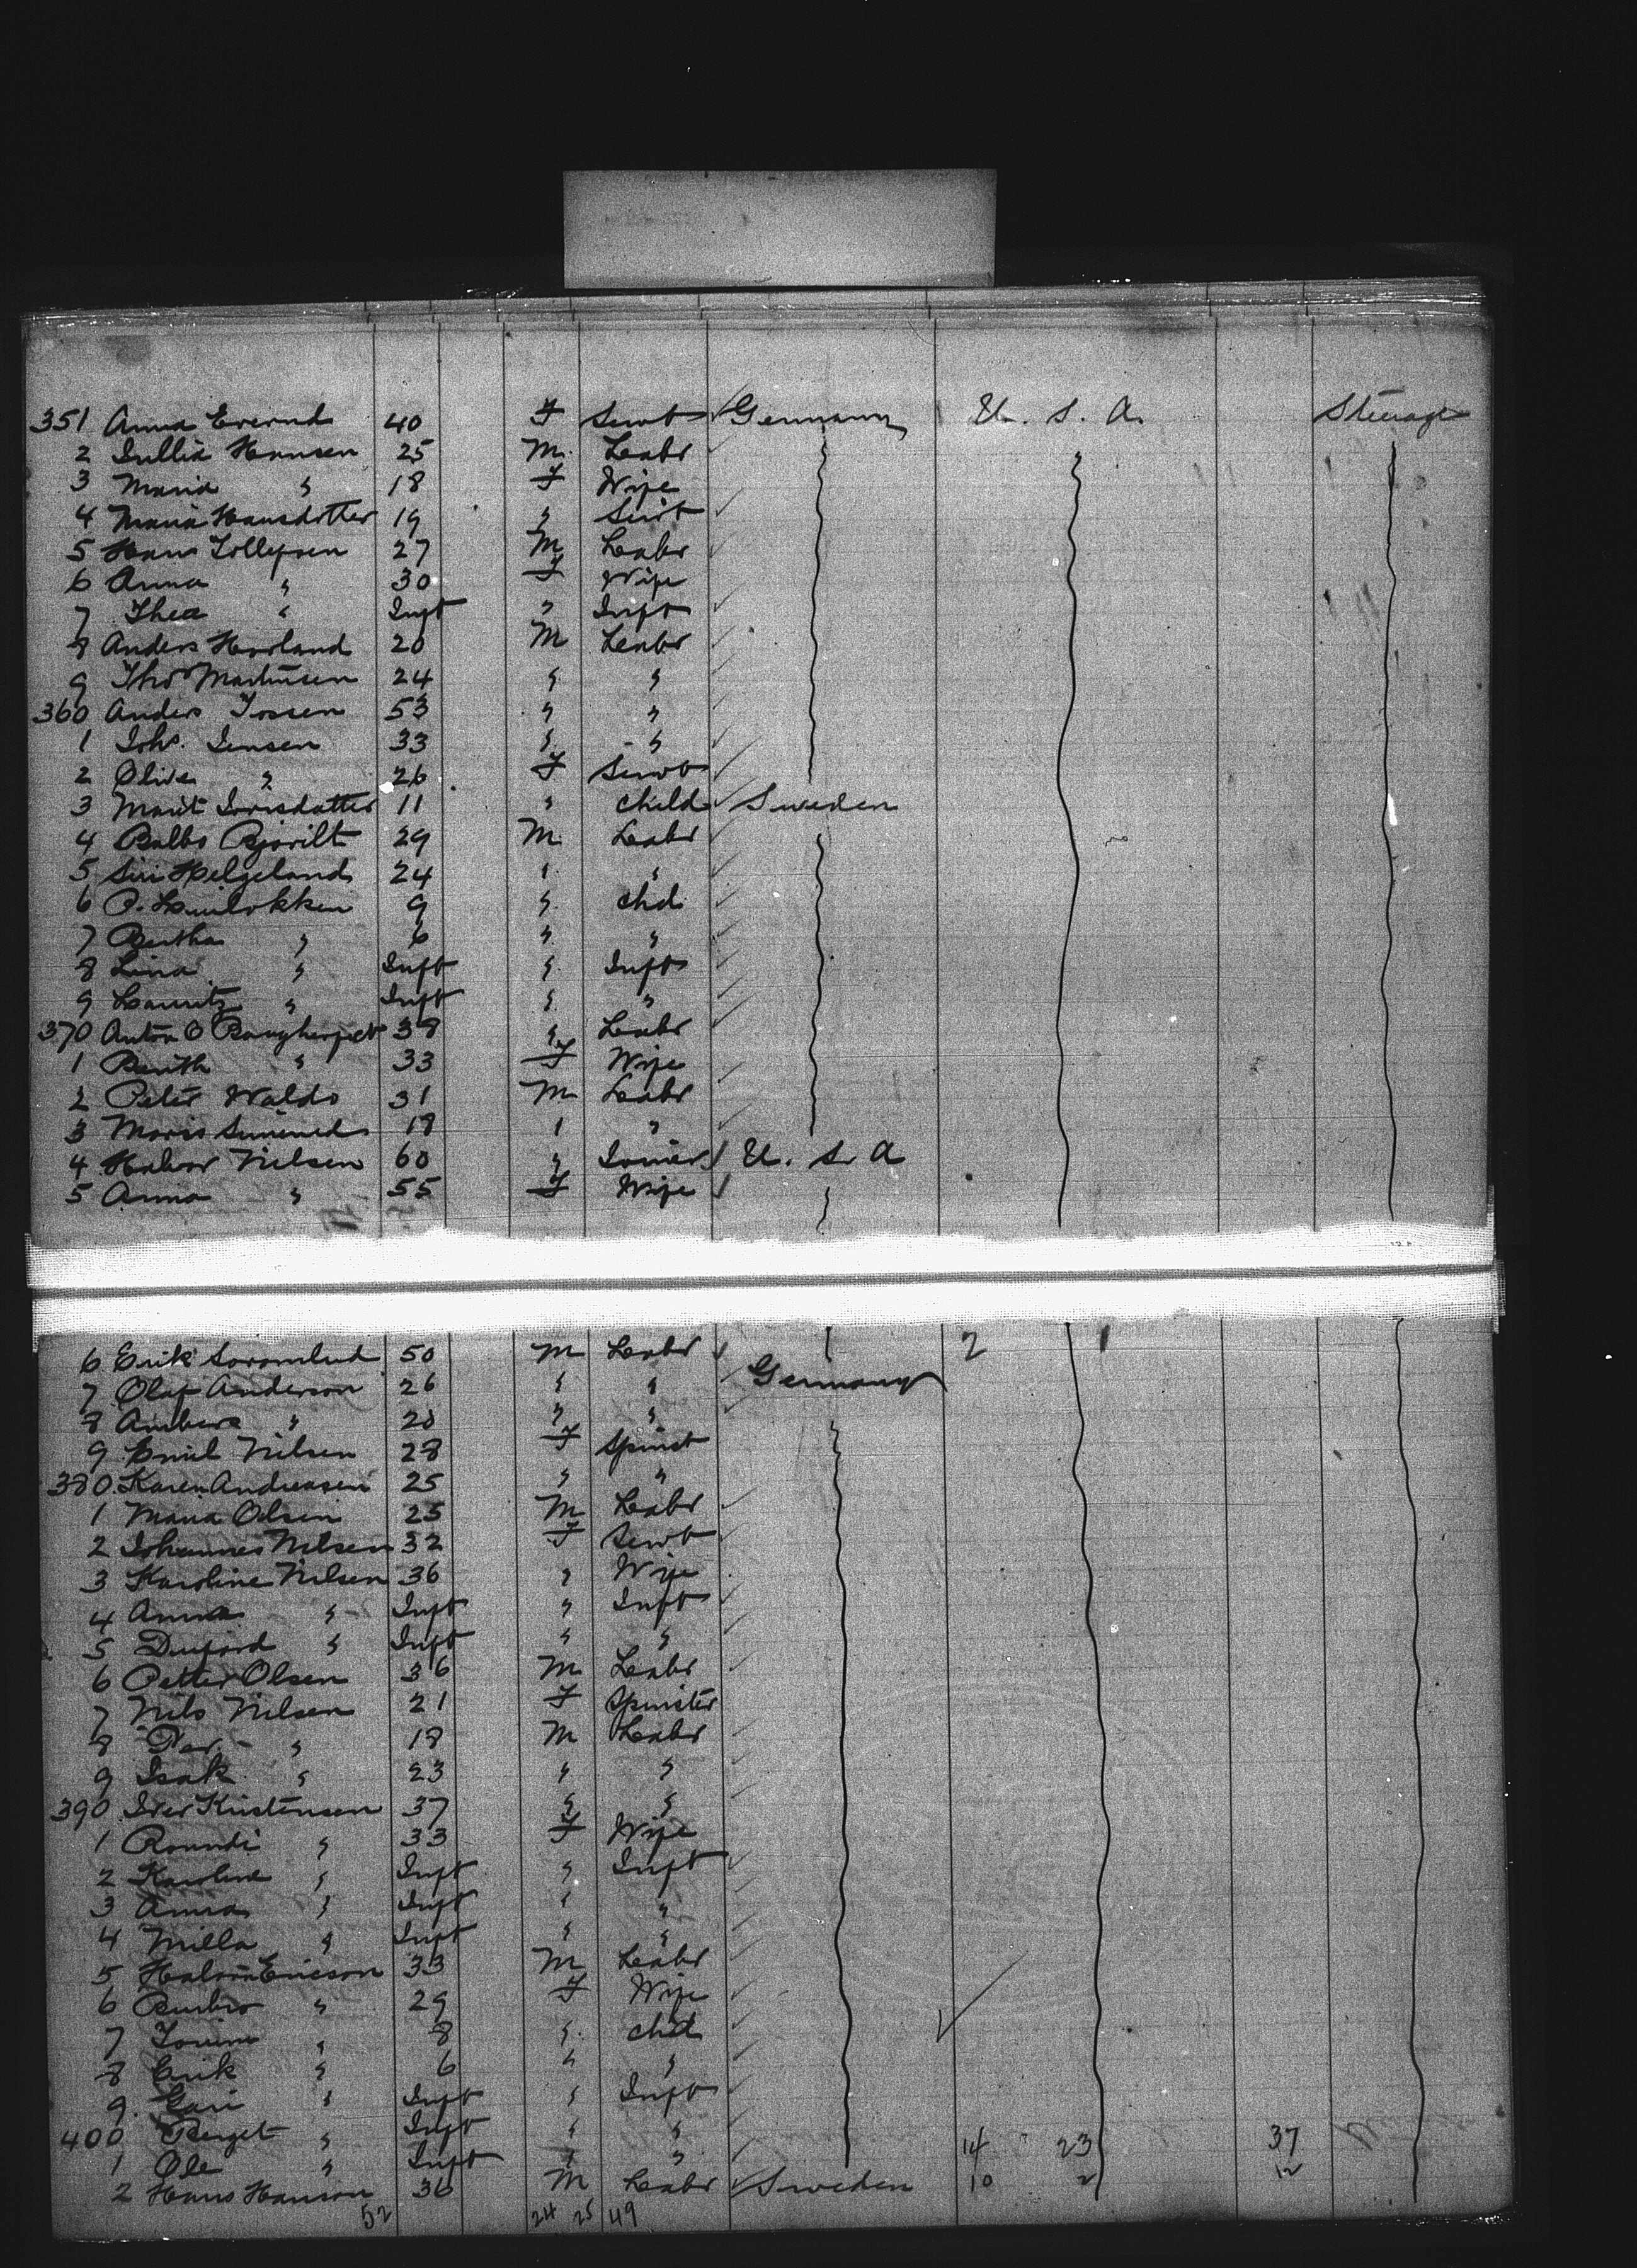 351 Anna Evernd 40 F Servt Germany U. S. A. Steerage
2 Jullia Hansen 25 M. Labr
3 Maria " 18 F Wife
4 Maria Hansdotter 19 " Servt
5 Hans Tollefsen 27 M Labr
6 Anna " 30 F Wife
7 Thea " Inft " Inft
8 Anders Hovland 20 M Labr
9 Thos Martinsen 24 " "
360 Anders Jossen 53 " "
1 Joh. Jensen 33 " "
2 Olive " 26 F Servt
3 Marit Iversdatter 11 " Child Sweden
4 Balbo Bjorilt 29 M. Labr
5 Siri Helgeland 24 " "
6 P. 9 " Chd.
7 Bertha " 6 " "
8 Lina " Inft " Inft
9 Lauritz " Inft " "
370 Anton O 38 " Labr
1 Berith " 33 F Wife
2 Peter Waldo 31 M Labr
3 18 " "
4 Halvor Nielsen 60 " U. S. A
5 Anna " 55 F Wife
6 Erik 50 M Labr 2
7 Olaf Anderson 26 " " Germany
8 " 20 " "
9 Emil Nilsen 28 F Spinst
380 Karen Andreasen 25 " "
1 Maria Olsen 25 M Labr
2 Johannes Nilsen 32 F Servt
3 Karoline Nilsen 36 " Wife
4 Anna " Inft " Inft
5 " Inft " "
6 Petter Olsen 36 M Labr
7 Nils Nilsen 21 F Spinster
8 Per " 18 M Labr
9 Isak " 23 " "
390 Iver Kristensen 37 " "
1 Roundi " 33 F Wife
2 Karoline " Inft " Inft
3 Anna " Inft " "
4 Milla " Inft " "
5 Halvor Ericson 33 M Labr
6 " 29 F Wife
7 " 8 " Chd
8 Erik " 6 " "
9 Gari " Inft " Inft
400 Berget " Inft " "
1 Ole " Inft " " 14 23 37
2 Hans Hanson 36 M Labr Sweden 10 2 12
52 24 25 49